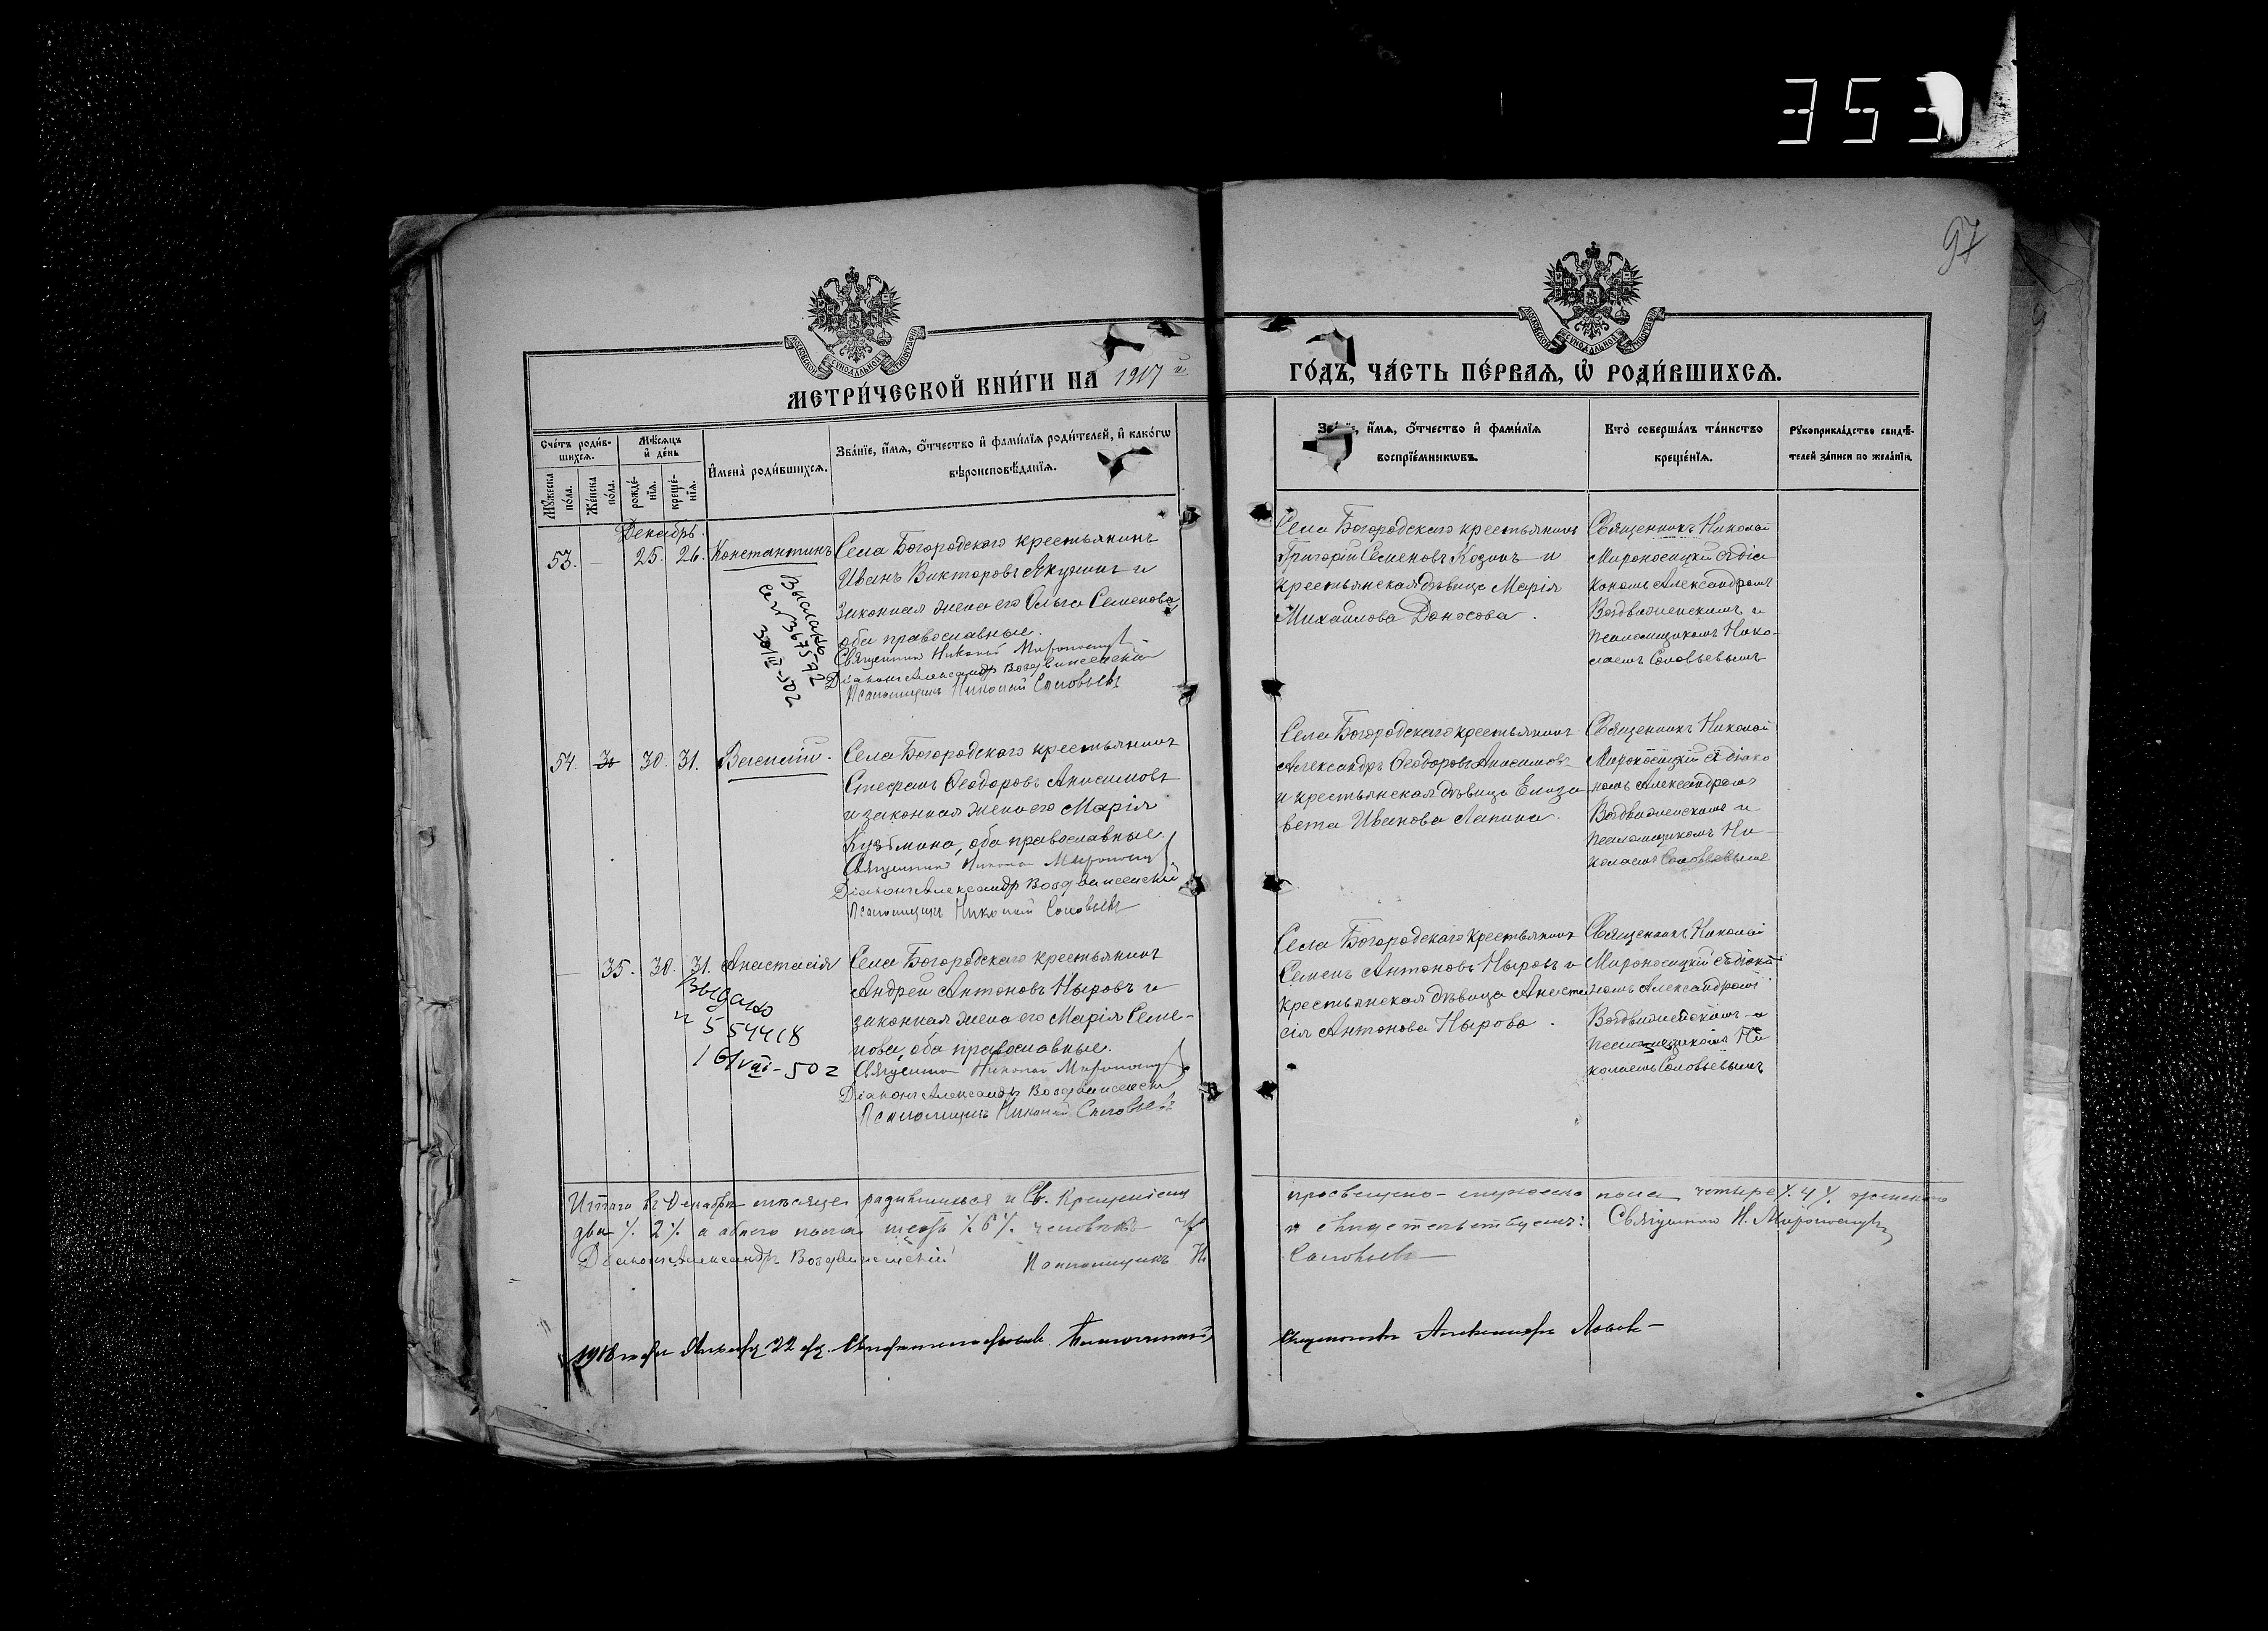 353
97
МОСКОВСКОЙ СѴНОДАЛЬНОЙ ТИПОГРАФІИ
МОСКОВСКОЙ СѴНОДАЛЬНОЙ ТИПОГРАФІИ
МЕТРИ́ЧЕСКОЙ КНИ́ГИ НА 1917 й
ГО́ДЪ, ЧА́СТЬ ПЕ́РВАѦ, Ѡ҆ РОДИ́ВШИХСѦ.
Сче́тъ роди́в-
шихсѧ.
Мꙋ́жеска по́ла.
Же́нска по́ла.
Мѣ́сѧцъ и҆ де́нь
рожде́-нїѧ.
креще́-нїѧ.
И҆мена̀ роди́вшихсѧ.
Зва́нїе, и҆́мѧ, ѻ҆́тчество и҆ фами́лїѧ роди́телей, и҆ како́гѡ
вѣроисповѣ́данїѧ.
Зва́нїе, и҆́мѧ, ѻ҆́тчество и҆ фами́лїѧ
воспрїе́мникѡвъ.
Кто̀ соверша́лъ та́инство
креще́нїѧ.
Рꙋкоприкла́дство свидѣ́-
телей за́писи по жела́нїю.
Декабрь.
53. — 25. 26. Константинъ
Села Богородскаго крестьянинъ
Иванъ Викторовъ Якунинъ и
законная жена его Ольга Семенова,
оба православные.
Священникъ Николай Мироносиц
Діаконъ Александръ Воздвиженскій
Псаломщикъ Николай Соловьевъ
Выдано
367572
30/III-50г
Села Богородскаго крестьянинъ
Григорій Семеновъ Козинъ и
крестьянская дѣвица Марія
Михаилова Доносова.
Священникъ Николай
Мироносицкій съ діа
кономъ Александромъ
Воздвиженскимъ и
псаломщикомъ Нико-
лаемъ Соловьевымъ
54. 30. 31. Василій.
Села Богородскаго крестьянинъ
Стефанъ Ѳеодоровъ Анисимовъ
и законная жена его Марія
Кузьмина, оба православные
Священникъ Николай Мироносиц
Діаконъ Александръ Воздвиженскій
Псаломщикъ Николай Соловьевъ
Села Богородскаго крестьянинъ
Александръ Ѳеодоровъ Анисимовъ
и крестьянская дѣвица Елиза
вета Иванова Лапина.
Священникъ Николай
Мироносицкій съ діако
номъ Александромъ
Воздвиженскимъ и
псаломщикомъ Ни-
колаемъ Соловьевымъ
— 35. 30. 31. Анастасія
Села Богородскаго крестьянинъ
Андрей Антоновъ Ныровъ и
законная жена его Марія Семе-
нова, оба православные.
Священникъ Николай Мироносиц
Діаконъ Александръ Воздвиженскій
Псаломщикъ Николай Соловьевъ
Выдано
554418
16/VIII-50г
Села Богородскаго крестьянинъ
Семенъ Антоновъ Ныровъ и
крестьянская дѣвица Анаста
сія Антонова Нырова.
Священникъ Николай
Мироносицкій съ діако
номъ Александромъ
Воздвиженскимъ и
псаломщикомъ Ни
колаемъ Соловьевымъ
Итого въ Декабрѣ мѣсяцѣ родившихся и Св. Крещеніемъ
просвещено - мужеска пола четыре /. 4 /. женскаго
два /. 2 /. а обоего пола шесть /. 6 /. человѣкъ
и свидетельствуемъ: Священникъ Н. Мироносиц
Діаконъ Александръ Воздвиженскій Псаломщикъ Н.
Соловьевъ
1918 года Января 22 дня.
Священникъ Александръ